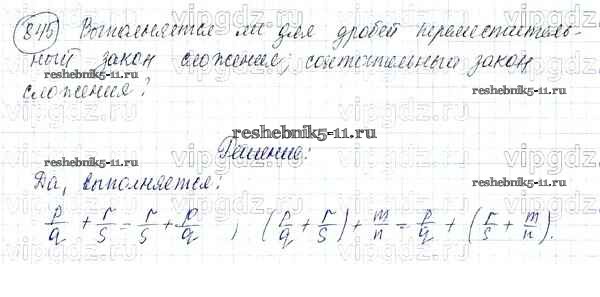 845 Выполняется ли для дробей переместитель-
ный закон сложения; сочетательный закон
сложения?
reshebnik5-11.ru
reshebnik5-11.ru
reshebnik5-11.ru
Решение:
Да, выполняется:
reshebnik5-11.ru
p/q + r/s = r/s + p/q ; (p/q + r/s) + m/n = p/q + (r/s + m/n).
vipgdz.ru